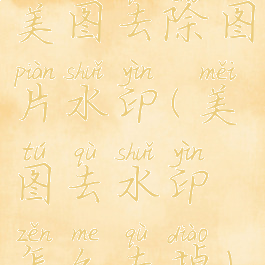 美图去除图
piàn shuǐ yìn měi
片水印(美
tú qù shuǐ yìn
图去水印
zěn me qù diào
怎么去掉)